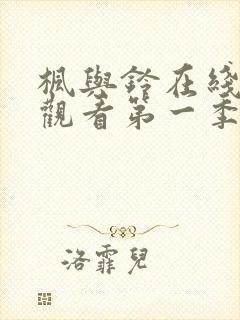 楓與鈴在綫
觀看第一季
洛霏兒